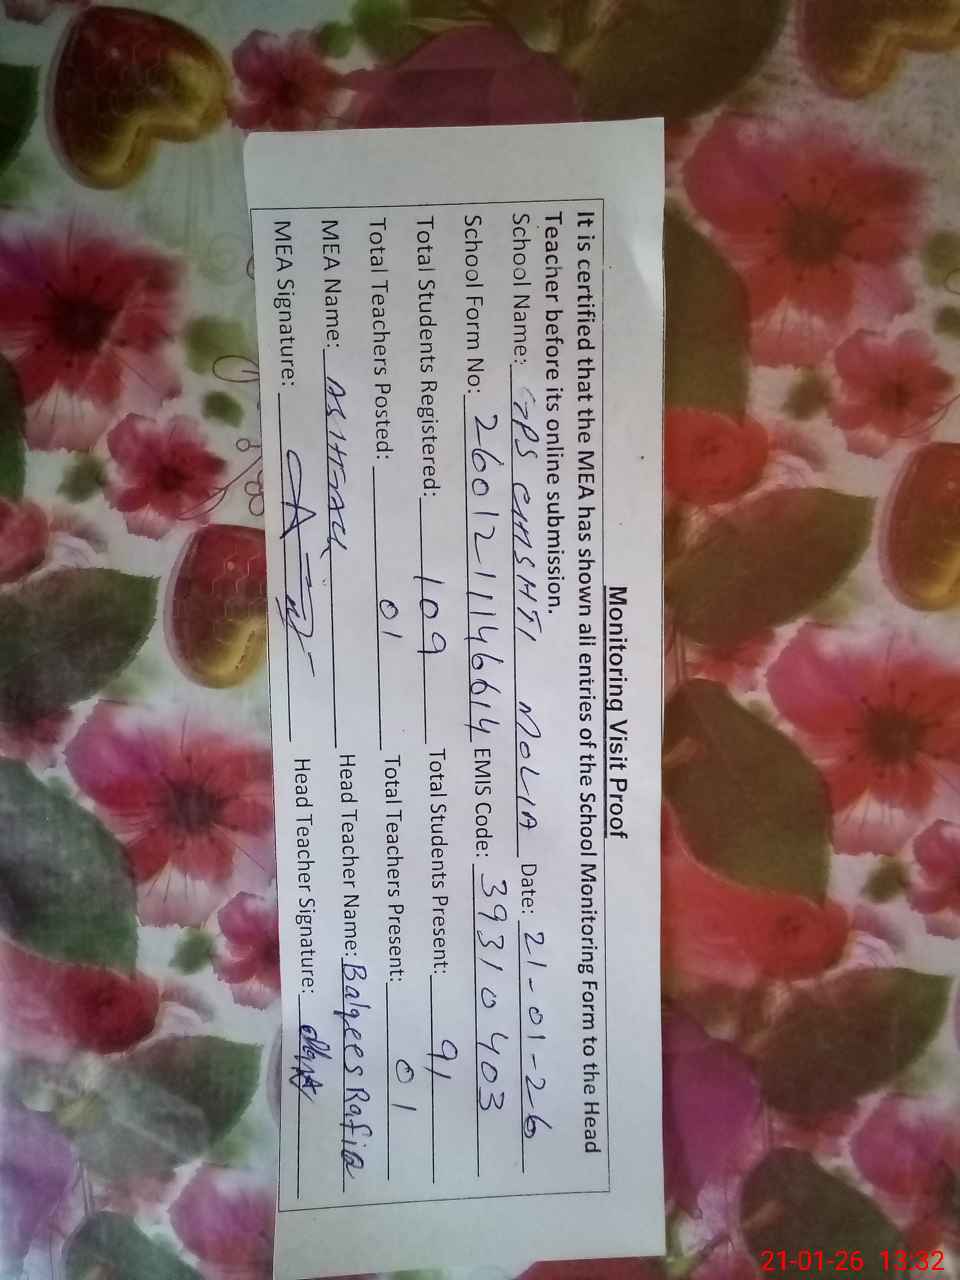 Monitoring Visit Proof
It is certified that the MEA has shown all entries of the School Monitoring Form to the Head
Teacher before its online submission.
School Name: GPS CHISHTI MOLIA Date: 21-01-26
School Form No: 2601211146614 EMIS Code: 39310403
Total Students Registered: 109 Total Students Present: 91
Total Teachers Posted: 01 Total Teachers Present: 01
MEA Name: Head Teacher Name: Balqees Rafia
MEA Signature: Head Teacher Signature:
21-01-26 13:32